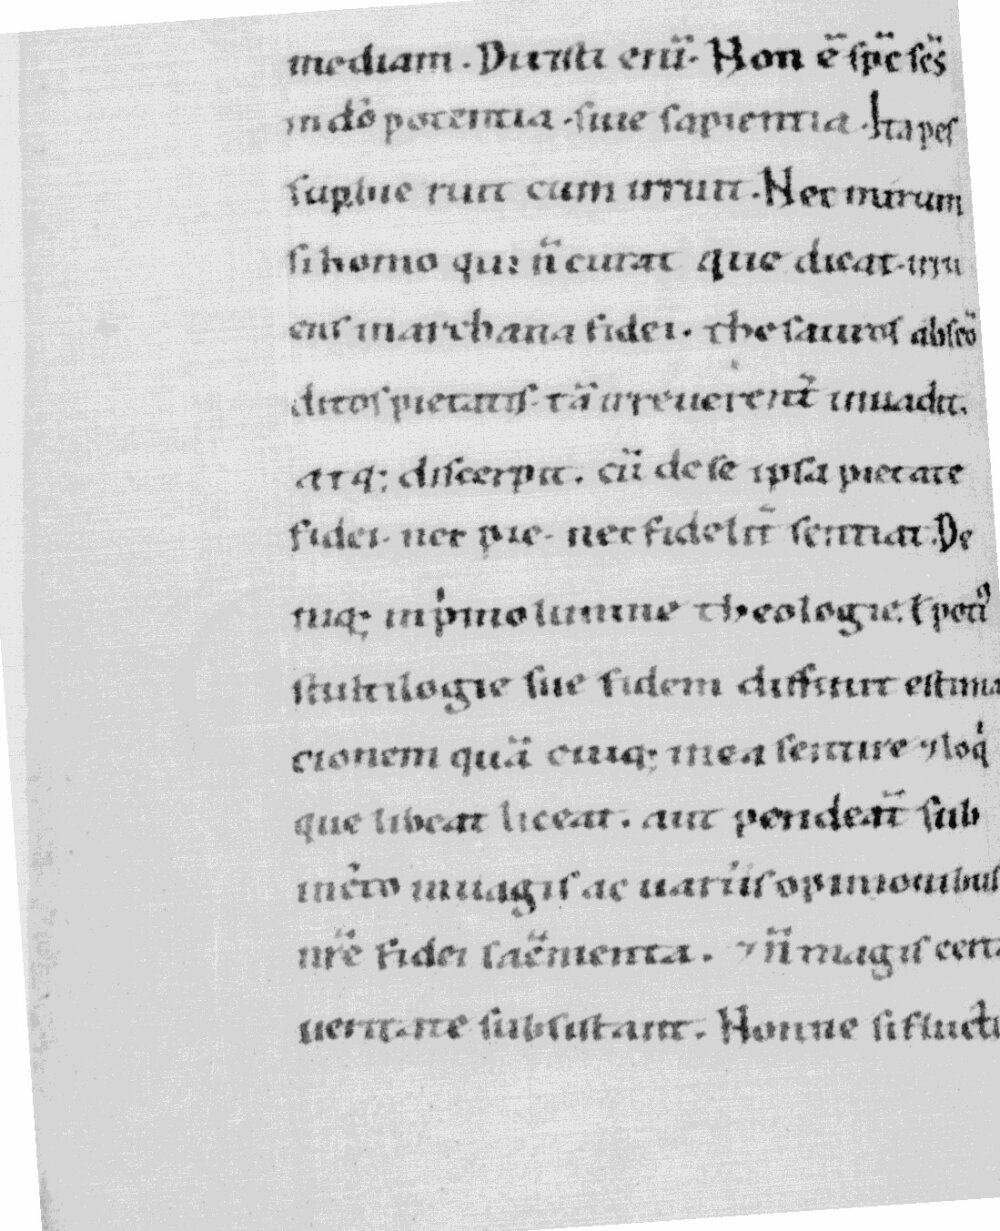 mediam. Dixisti enī. Non ē spc̄ scs̄
in dō potentia. siue sapientia. Ita pes
supbie ruit cum irruit. Nec mirum
si homo qui n̄ curat que dicat. irru
ens in archana fidei. thesauros abscō
ditos pietatis. tā irreuerent̄ inuadit.
atq; discerpit. cū de se ipsa pietate
fidei. nec pie. nec fidelit̄ sentiat. De
niq; in pͥmo limine theologie. ł poti⁹
stultilogie sue fidem diffinit estima
cionem quā cuiq; in ea sentire ⁊ loqͥ
que libeat liceat. aut pendeāt sub
inc̄to in uagis ac uariis opinionibus
nr̄e fidei sac̄menta. ⁊ n̄ magis certa
ueritate subsistant. Nonne si fluctu